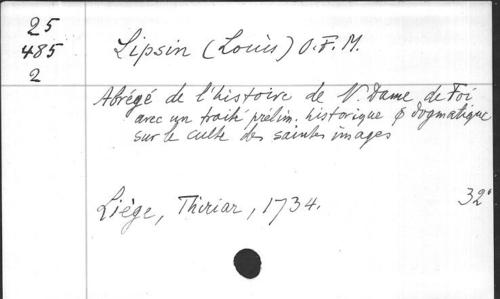 25
485
2
Lipsin (Louis) O.F.M.
Abrégé de l'histoire de N. Dame de Foi
avec un traité prélim. historique & dogmatique
sur le culte des saintes images
Liège, Thiriar, 1734.
32°